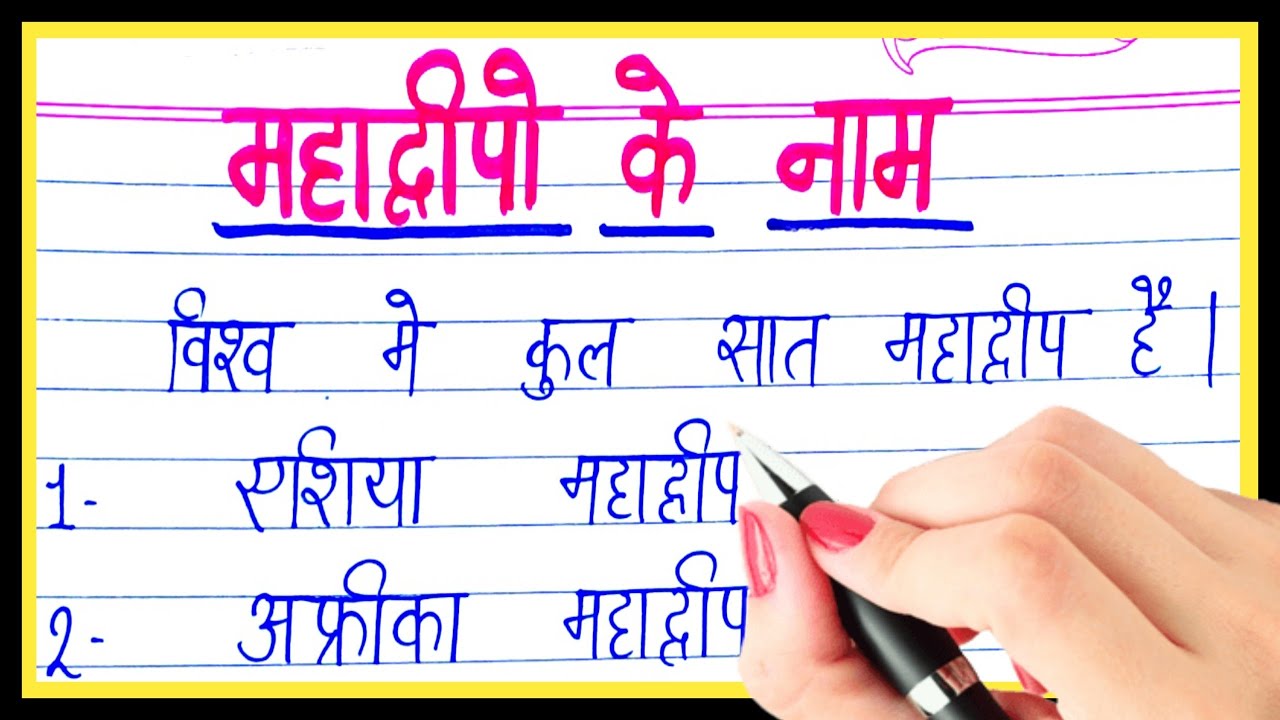 महाद्वीपो के नाम
विश्व मे कुल सात महाद्वीप हैं।
1- एशिया महाद्वीप
2- अफ्रीका महाद्वीप